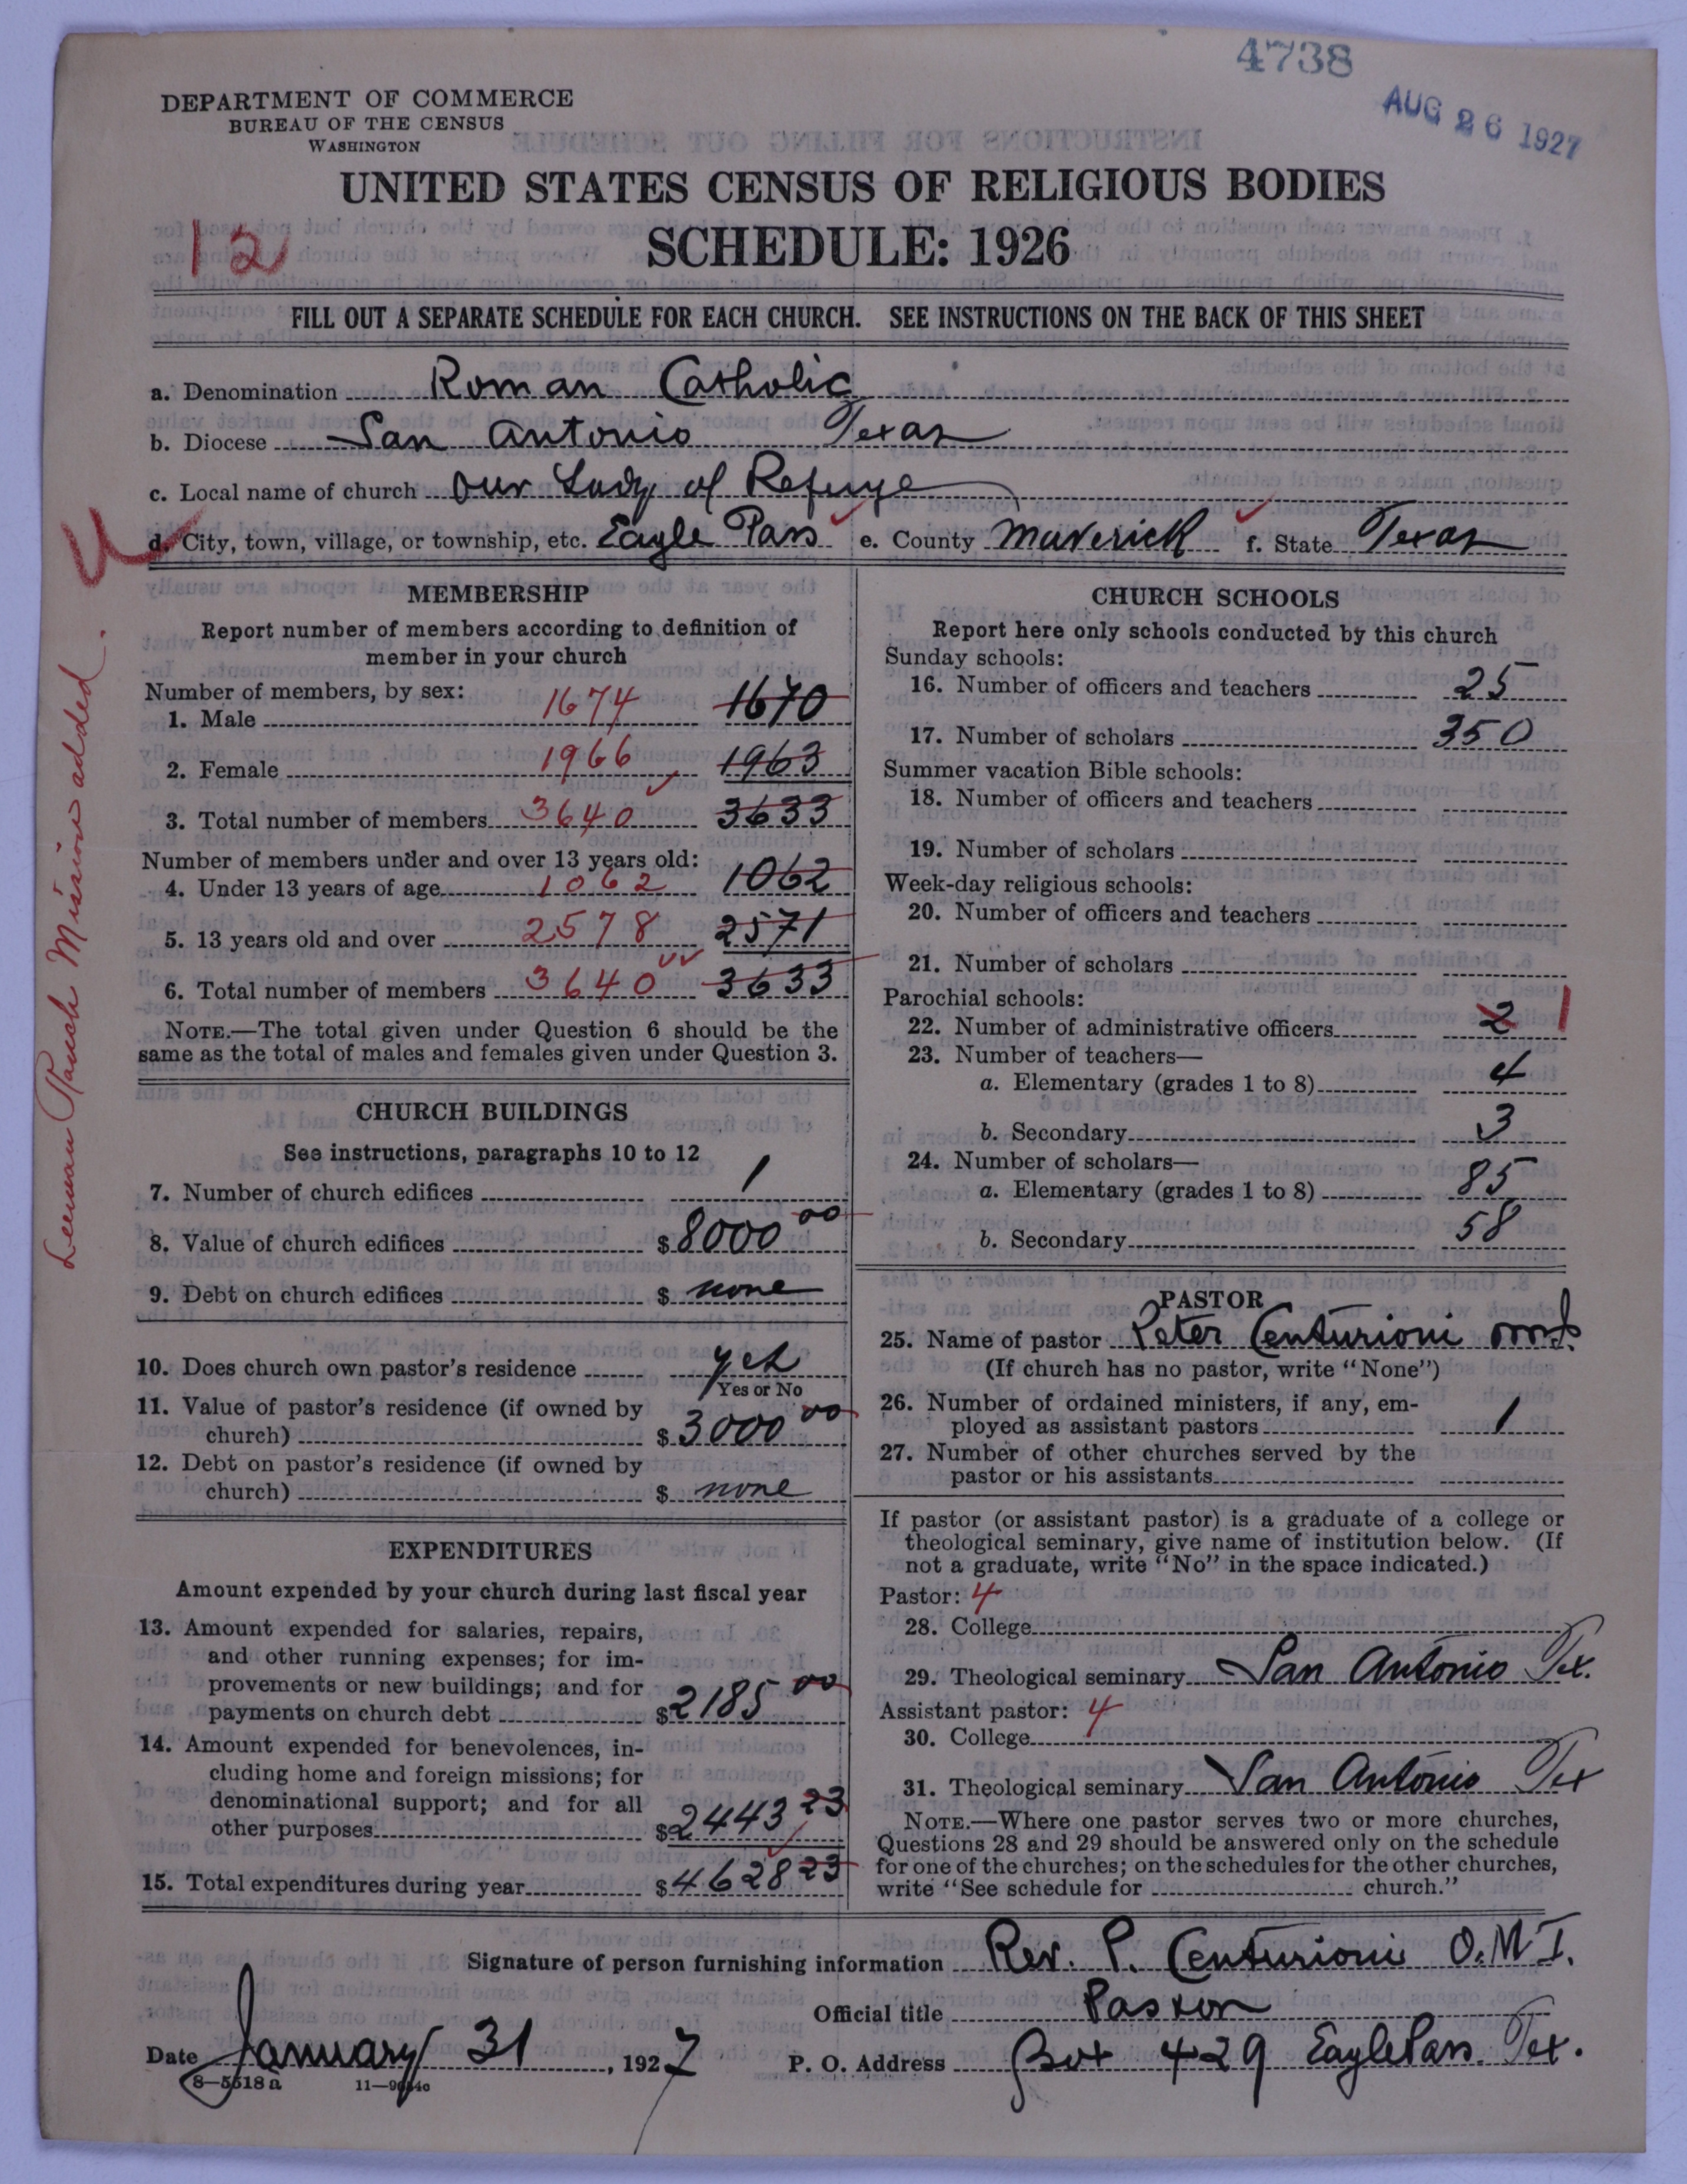 4738
AUG 26 1927
DEPARTMENT OF COMMERCE
BUREAU OF THE CENSUS
WASHINGTON
UNITED STATES CENSUS OF RELIGIOUS BODIES
12
SCHEDULE: 1926
FILL OUT A SEPARATE SCHEDULE FOR EACH CHURCH. SEE INSTRUCTIONS ON THE BACK OF THIS SHEET
a. Denomination Roman Catholic
b. Diocese San Antonio Texas
c. Local name of church Our Lady of Refuge
d. City, town, village, or township, etc. Eagle Pass e. County Maverick f. State Texas
Ranch Mission added.
MEMBERSHIP
Report number of members according to definition of
member in your church
Number of members, by sex:
1. Male 1674 1670
2. Female 1966 1963
3. Total number of members 3640 3633
Number of members under and over 13 years old:
4. Under 13 years of age 1062 1062
5. 13 years old and over 2578 2571
6. Total number of members 3640 3633
NOTE.—The total given under Question 6 should be the
same as the total of males and females given under Question 3.
CHURCH BUILDINGS
See instructions, paragraphs 10 to 12
7. Number of church edifices 1
8. Value of church edifices $ 8000 00
9. Debt on church edifices $ none
10. Does church own pastor's residence yes
Yes or No
11. Value of pastor's residence (if owned by
church) $ 3000 00
12. Debt on pastor's residence (if owned by
church) $ none
EXPENDITURES
Amount expended by your church during last fiscal year
13. Amount expended for salaries, repairs,
and other running expenses; for im-
provements or new buildings; and for
payments on church debt $ 2185 00
14. Amount expended for benevolences, in-
cluding home and foreign missions; for
denominational support; and for all
other purposes $ 2443 23
15. Total expenditures during year $ 4628 23
CHURCH SCHOOLS
Report here only schools conducted by this church
Sunday schools:
16. Number of officers and teachers 25
17. Number of scholars 350
Summer vacation Bible schools:
18. Number of officers and teachers
19. Number of scholars
Week-day religious schools:
20. Number of officers and teachers
21. Number of scholars
Parochial schools:
22. Number of administrative officers 2 1
23. Number of teachers—
a. Elementary (grades 1 to 8) 4
b. Secondary 3
24. Number of scholars—
a. Elementary (grades 1 to 8) 85
b. Secondary 58
PASTOR
25. Name of pastor Peter Centurioni omi.
(If church has no pastor, write "None")
26. Number of ordained ministers, if any, em-
ployed as assistant pastors 1
27. Number of other churches served by the
pastor or his assistants
If pastor (or assistant pastor) is a graduate of a college or
theological seminary, give name of institution below. (If
not a graduate, write "No" in the space indicated.)
Pastor: 4
28. College
29. Theological seminary San Antonio Tex.
Assistant pastor: 4
30. College
31. Theological seminary San Antonio Tex
NOTE.—Where one pastor serves two or more churches,
Questions 28 and 29 should be answered only on the schedule
for one of the churches; on the schedules for the other churches,
write "See schedule for church."
Signature of person furnishing information Rev. P. Centurioni O.M.I.
Official title Pastor
Date January 31, 1927 P. O. Address Box 429 Eagle Pass. Tex.
8—5518 a